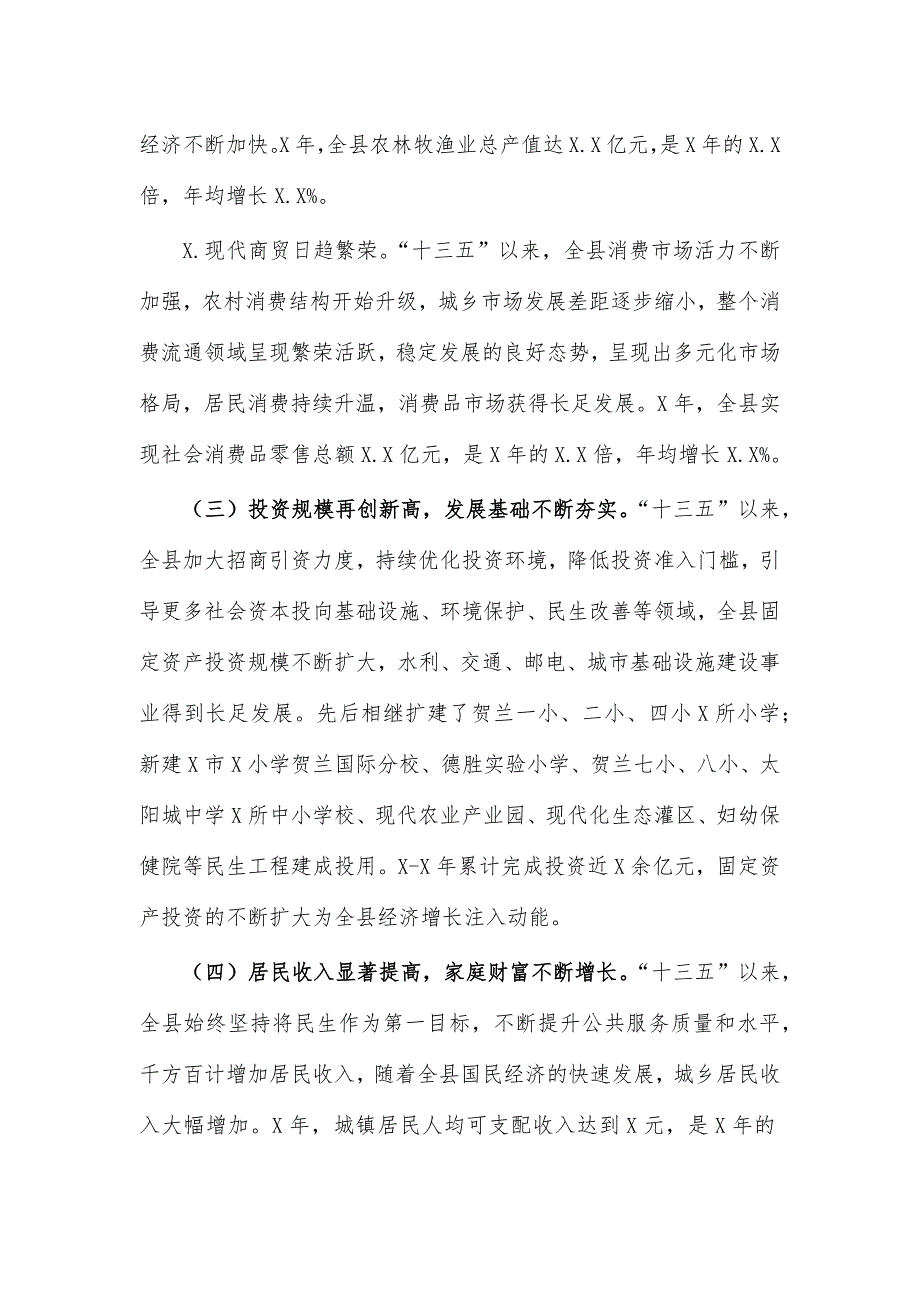 经济不断加快。X 年，全县农林牧渔业总产值达 X.X 亿元，是 X 年的 X.X
倍，年均增长 X.X%。
X.现代商贸日趋繁荣。“十三五”以来，全县消费市场活力不断
加强，农村消费结构开始升级，城乡市场发展差距逐步缩小，整个消
费流通领域呈现繁荣活跃，稳定发展的良好态势，呈现出多元化市场
格局，居民消费持续升温，消费品市场获得长足发展。X 年，全县实
现社会消费品零售总额 X.X 亿元，是 X 年的 X.X 倍，年均增长 X.X%。
（三）投资规模再创新高，发展基础不断夯实。“十三五”以来，
全县加大招商引资力度，持续优化投资环境，降低投资准入门槛，引
导更多社会资本投向基础设施、环境保护、民生改善等领域，全县固
定资产投资规模不断扩大，水利、交通、邮电、城市基础设施建设事
业得到长足发展。先后相继扩建了贺兰一小、二小、四小 X 所小学；
新建 X 市 X 小学贺兰国际分校、德胜实验小学、贺兰七小、八小、太
阳城中学 X 所中小学校、现代农业产业园、现代化生态灌区、妇幼保
健院等民生工程建成投用。X-X 年累计完成投资近 X 余亿元，固定资
产投资的不断扩大为全县经济增长注入动能。
（四）居民收入显著提高，家庭财富不断增长。“十三五”以来，
全县始终坚持将民生作为第一目标，不断提升公共服务质量和水平，
千方百计增加居民收入，随着全县国民经济的快速发展，城乡居民收
入大幅增加。X 年，城镇居民人均可支配收入达到 X 元，是 X 年的